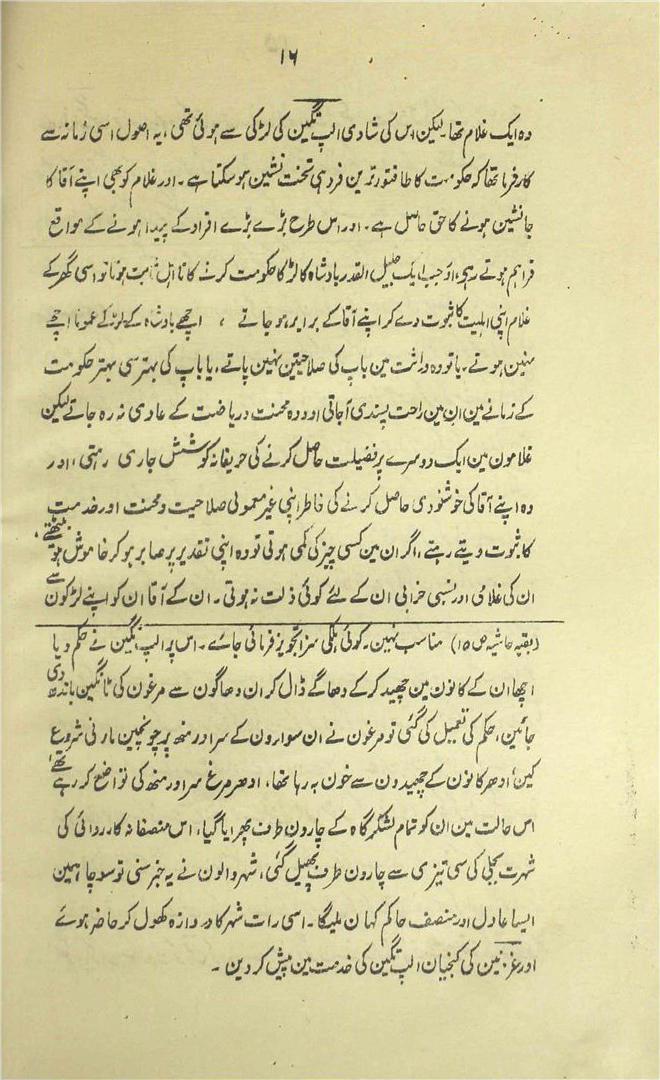 ۱۶
وہ ایک غلام تھا۔ لیکن اس کی شادی الپ تگین کی لڑکی سے ہوئی تھی، یہ اصول اسی زمانہ سے
کارفرما تھا کہ حکومت کا طاقتور ترین فرد ہی تخت نشین ہو سکتا ہے۔ اور غلام کو بھی اپنے آقا کا
جانشین ہونے کا حق حاصل ہے۔ اور اس طرح بڑے بڑے افراد کے پیدا ہونے کے مواقع
فراہم ہوتے رہی، اور جب ایک جلیل القدر بادشاہ کا لڑکا حکومت کرنے کا نا اہل ثابت ہوتا تو اسی گھر کے
غلام اپنی اہلیت کا ثبوت دے کر اپنے آقا کے برابر ہو جاتے ، اچھے بادشاہ کے لڑکے عموماً اچھے
نہین ہوتے۔ یا تو وہ وراثت مین باپ کی صلاحیتین نہین پاتے، یا باپ کی بہتر سی بہتر حکومت
کے زمانے مین ان مین راحت پسندی آجاتی اور وہ محنت و ریاضت کے عادی نہ رہ جاتے لیکن
غلامون مین ایک دوسرے پر فضیلت حاصل کرنے کی حریفانہ کوشش جاری رہتی، اور
وہ اپنے آقا کی خوشنودی حاصل کرنے کی خاطر اپنی غیر معمولی صلاحیت و محنت اور خدمت
کا ثبوت دیتے رہتے، اگر ان مین کسی چیز کی کمی ہوتی تو وہ اپنی تقدیر پر صابر ہو کر خاموش ہو بیٹھتے،
ان کی غلامی اور نسبی خرابی ان کے لئے کوئی ذلت نہ ہوتی۔ ان کے آقا ان کو اپنے لڑکون سے
(بقیہ حاشیہ ص ۱۵) مناسب نہین۔ کوئی ہلکی سزا تجویز فرمائی جائے۔ اس پر الپ تگین نے حکم دیا
اچھا ان کے کانون مین چھید کر کے دھاگے ڈال کر ان دھاگون سے مرغون کی ٹانگین باندھ دی
جائین، حکم کی تعمیل کی گئی تو مرغون نے ان سوارون کے سر اور منھ پر چونچین مارنی شروع
کین، ادھر کانون کے چھیدون سے خون بہ رہا تھا، ادھر مرغ سر اور منھ کی تواضع کر رہے تھے،
اس حالت مین ان کو تمام لشکر گاہ کے چارون طرف پھرایا گیا، اس منصفانہ کارروائی کی
شہرت بجلی کی سی تیزی سے چارون طرف پھیل گئی، شہر والون نے یہ خبر سنی تو سوچا ہمین
ایسا عادل اور منصف حاکم کہان ملیگا۔ اسی رات شہر کا دروازہ کھول کر حاضر ہوئے
اور غزنین کی کنجیان الپ تگین کی خدمت مین پیش کر دین۔